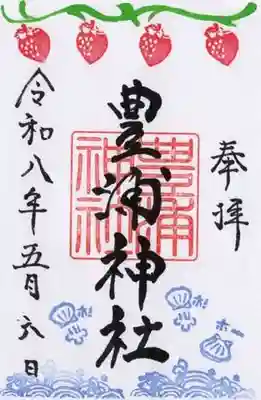 奉拝
豊浦神社
豊浦
神社
令和八年五月六日
ホー
ホー
ホー